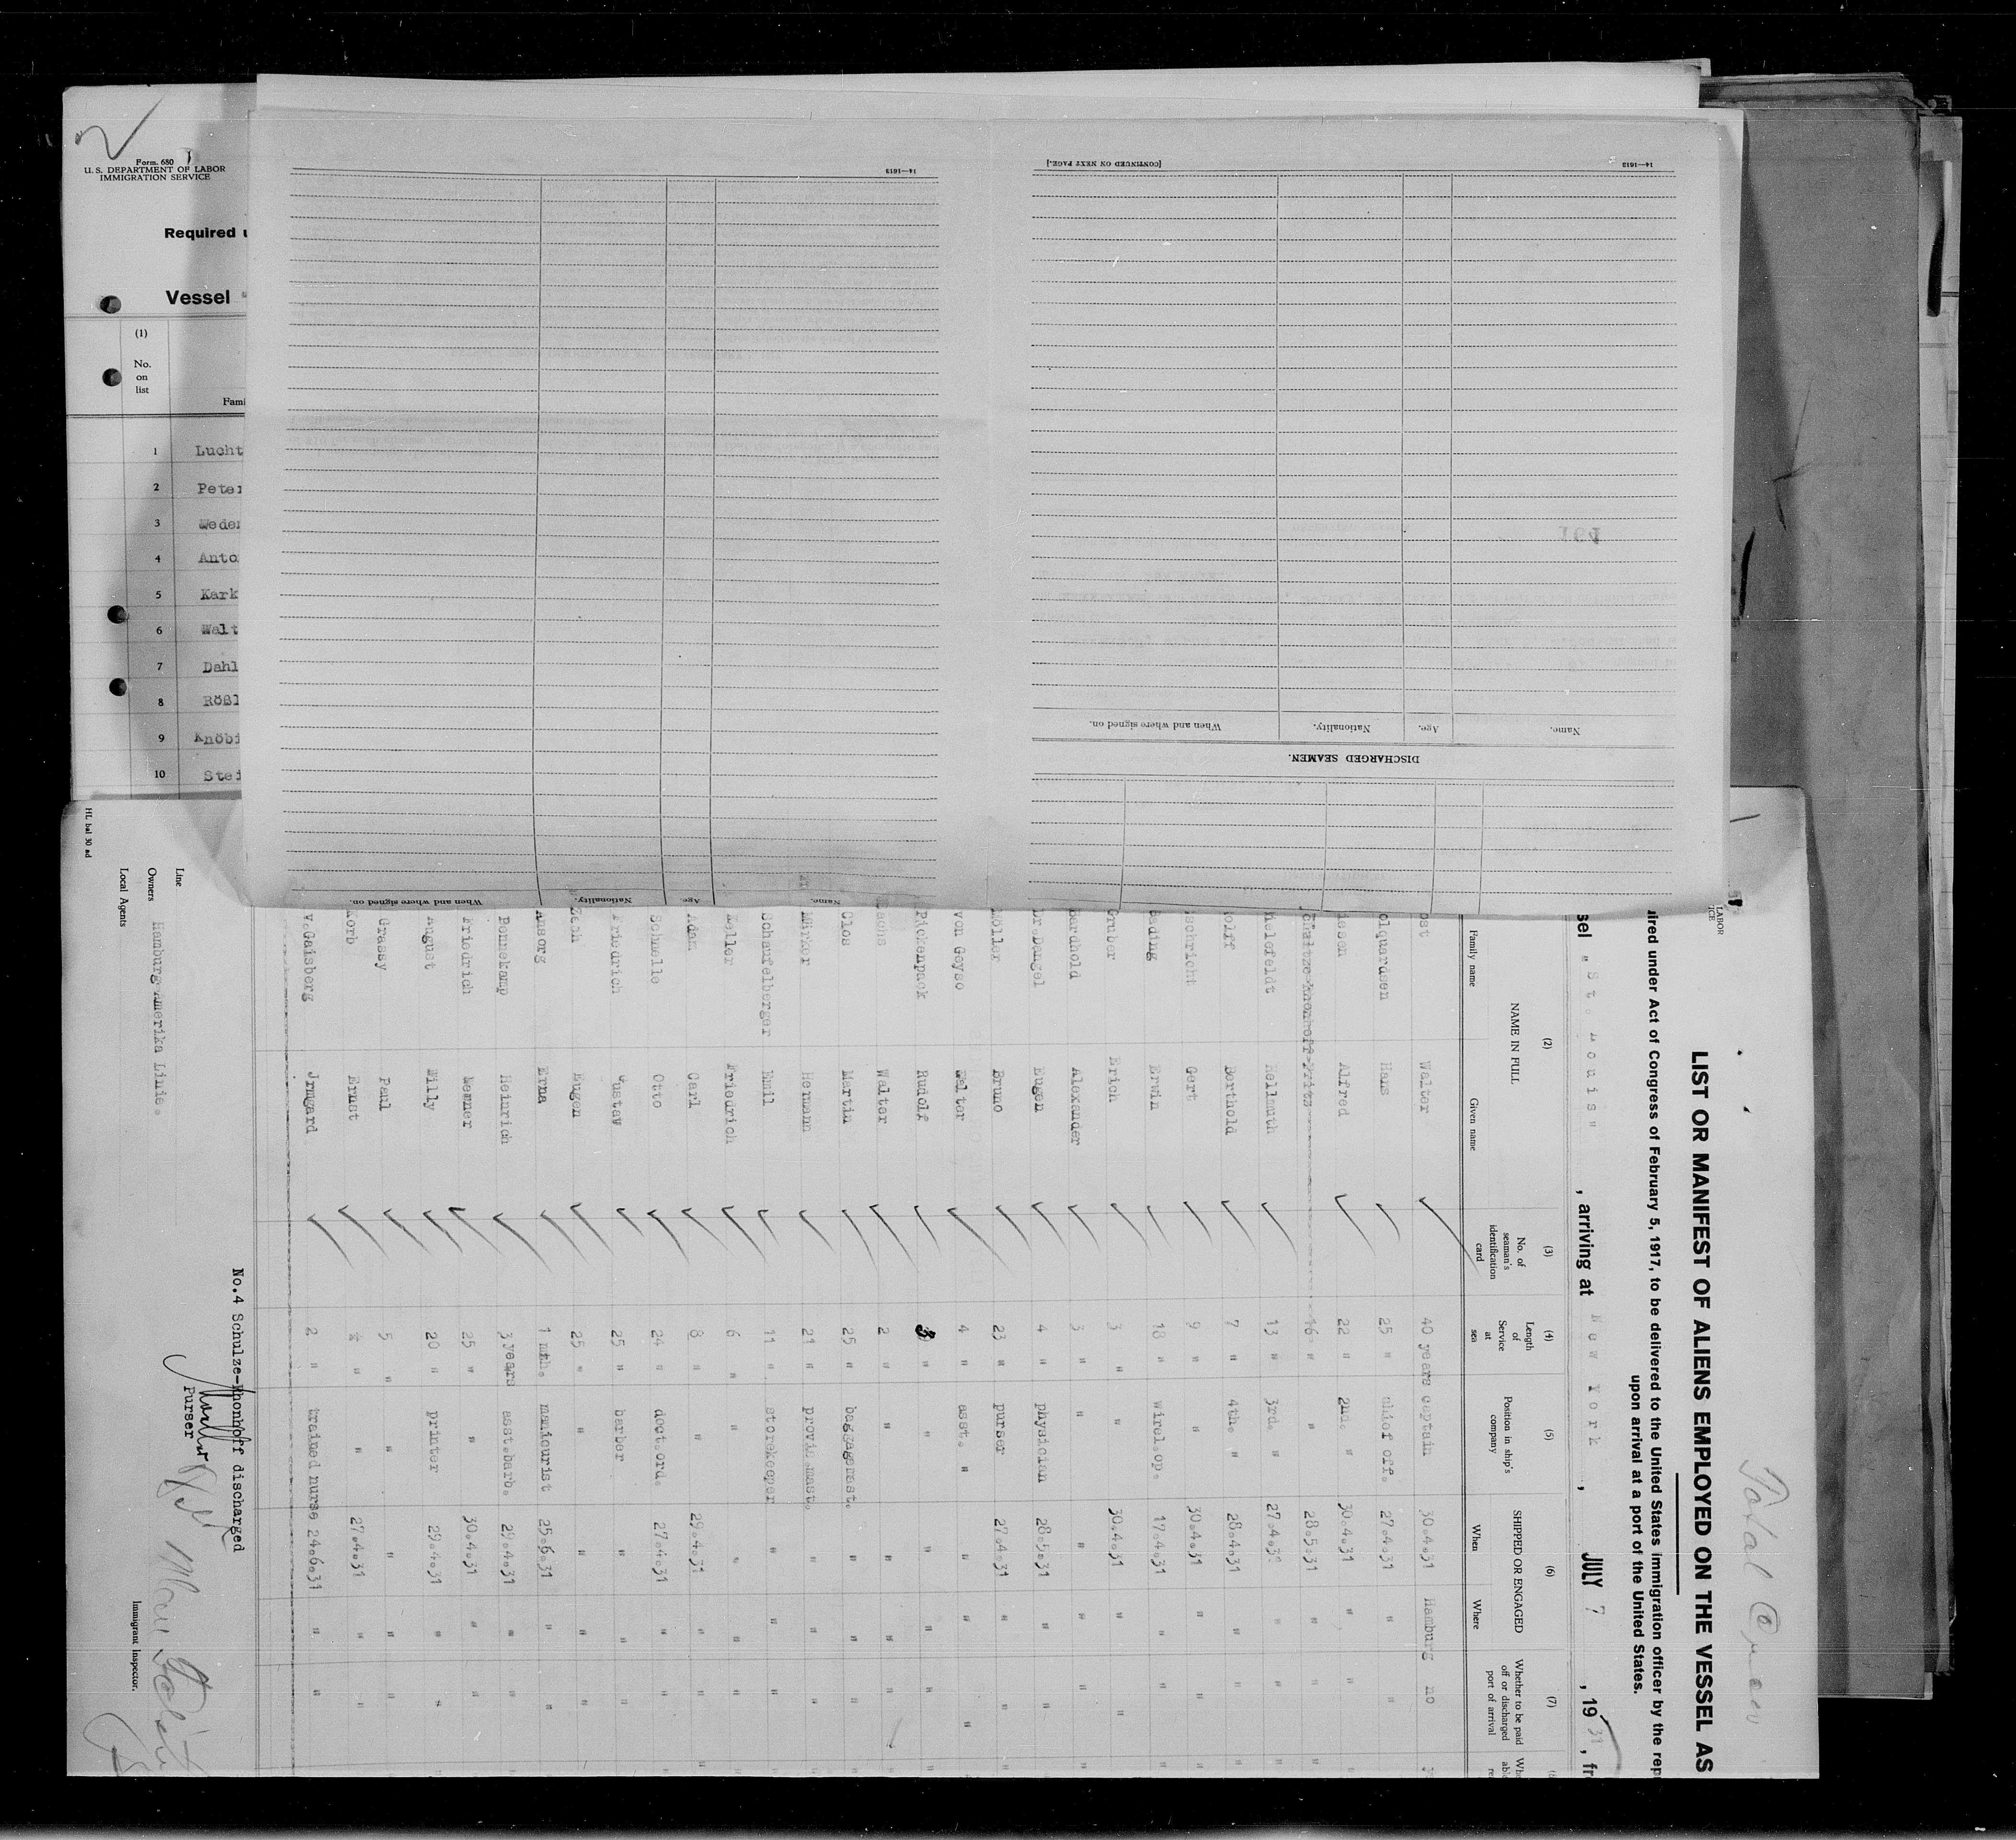 Form 680
U. S. DEPARTMENT OF LABOR
IMMIGRATION SERVICE
Required
Vessel
(1)
No.
on
list
Fami
1 Lucht
2 Peter
3 Weder
4 Anto
5 Kark
6 Walt
7 Dahl
8 Rößl
9 Knöbi
10 Stei
14—1613
[CONTINUED ON NEXT PAGE.]
14—1613
Name. Age. Nationality. When and where signed on.
DISCHARGED SEAMEN.
Name. Age. Nationality. When and where signed on.
LIST OR MANIFEST OF ALIENS EMPLOYED ON THE VESSEL AS
ired under Act of Congress of February 5, 1917, to be delivered to the United States immigration officer by the rep
upon arrival at a port of the United States.
sel "St. Louis", arriving at New York, JULY 7, 1931, fr
(2) (3) (4) (5) (6) (7)
NAME IN FULL
Family name Given name
No. of seaman's identification card
Length of Service at sea
Position in ship's company
SHIPPED OR ENGAGED
When Where
Whether to be paid off or discharged port of arrival
ost Walter 40 years captain 30.4.31 Hamburg no
olquardsen Hans 25 " chief off. 27.4.31 " "
iesen Alfred 22 " 2nd. " 30.4.31 " "
Fritz 16 " " 28.5.31 " "
ielefeldt Hellmuth 13 " 3rd. " 27.4.31 " "
olff Berthold 7 " 4th. " 28.4.31 " "
schricht Gert 9 " " 30.4.31 " "
eding Erwin 18 " wirel.op. 17.4.31 " "
Gruber Erich 3 " " 30.4.31 " "
Bardhold Alexander 3 " " " " "
Dr.Dengel Eugen 4 " physician 28.5.31 " "
Möller Bruno 23 " purser 27.4.31 " "
von Geyso Walter 4 " asst. " " " "
Rickenpack Rudolf " " " " "
Sachs Walter 2 " " " " "
Clos Martin 25 " baggagemast. " " "
Märker Hermann 21 " provis.mast. " " "
Schaufelberger Emil 11 " storekeeper " " "
Zeller Friedrich 6 " " " " "
Adam Carl 8 " " 29.4.31 " "
Schmelle Otto 24 " doct.ord. 27.4.31 " "
Friedrich Gustav 25 " barber " " "
Zech Eugen 25 " " " " "
Ansorg Erna 1 mth. manicurist 25.6.31 " "
Pennekamp Heinrich 3 years asst.barb. 29.4.31 " "
Friedrich Werner 25 " " 30.4.31 " "
August Willy 20 " printer 29.4.31 " "
Grassy Paul 5 " " " " "
Korb Ernst ½ " " 27.4.31 " "
v.Gaisberg Jrmgard 2 " trained nurse 24.6.31 " "
No.4 Schulze-Rhonhoff discharged
Purser
Line
Owners Hamburg-Amerika Linie.
Local Agents
Immigrant Inspector.
HL bal 30 ad